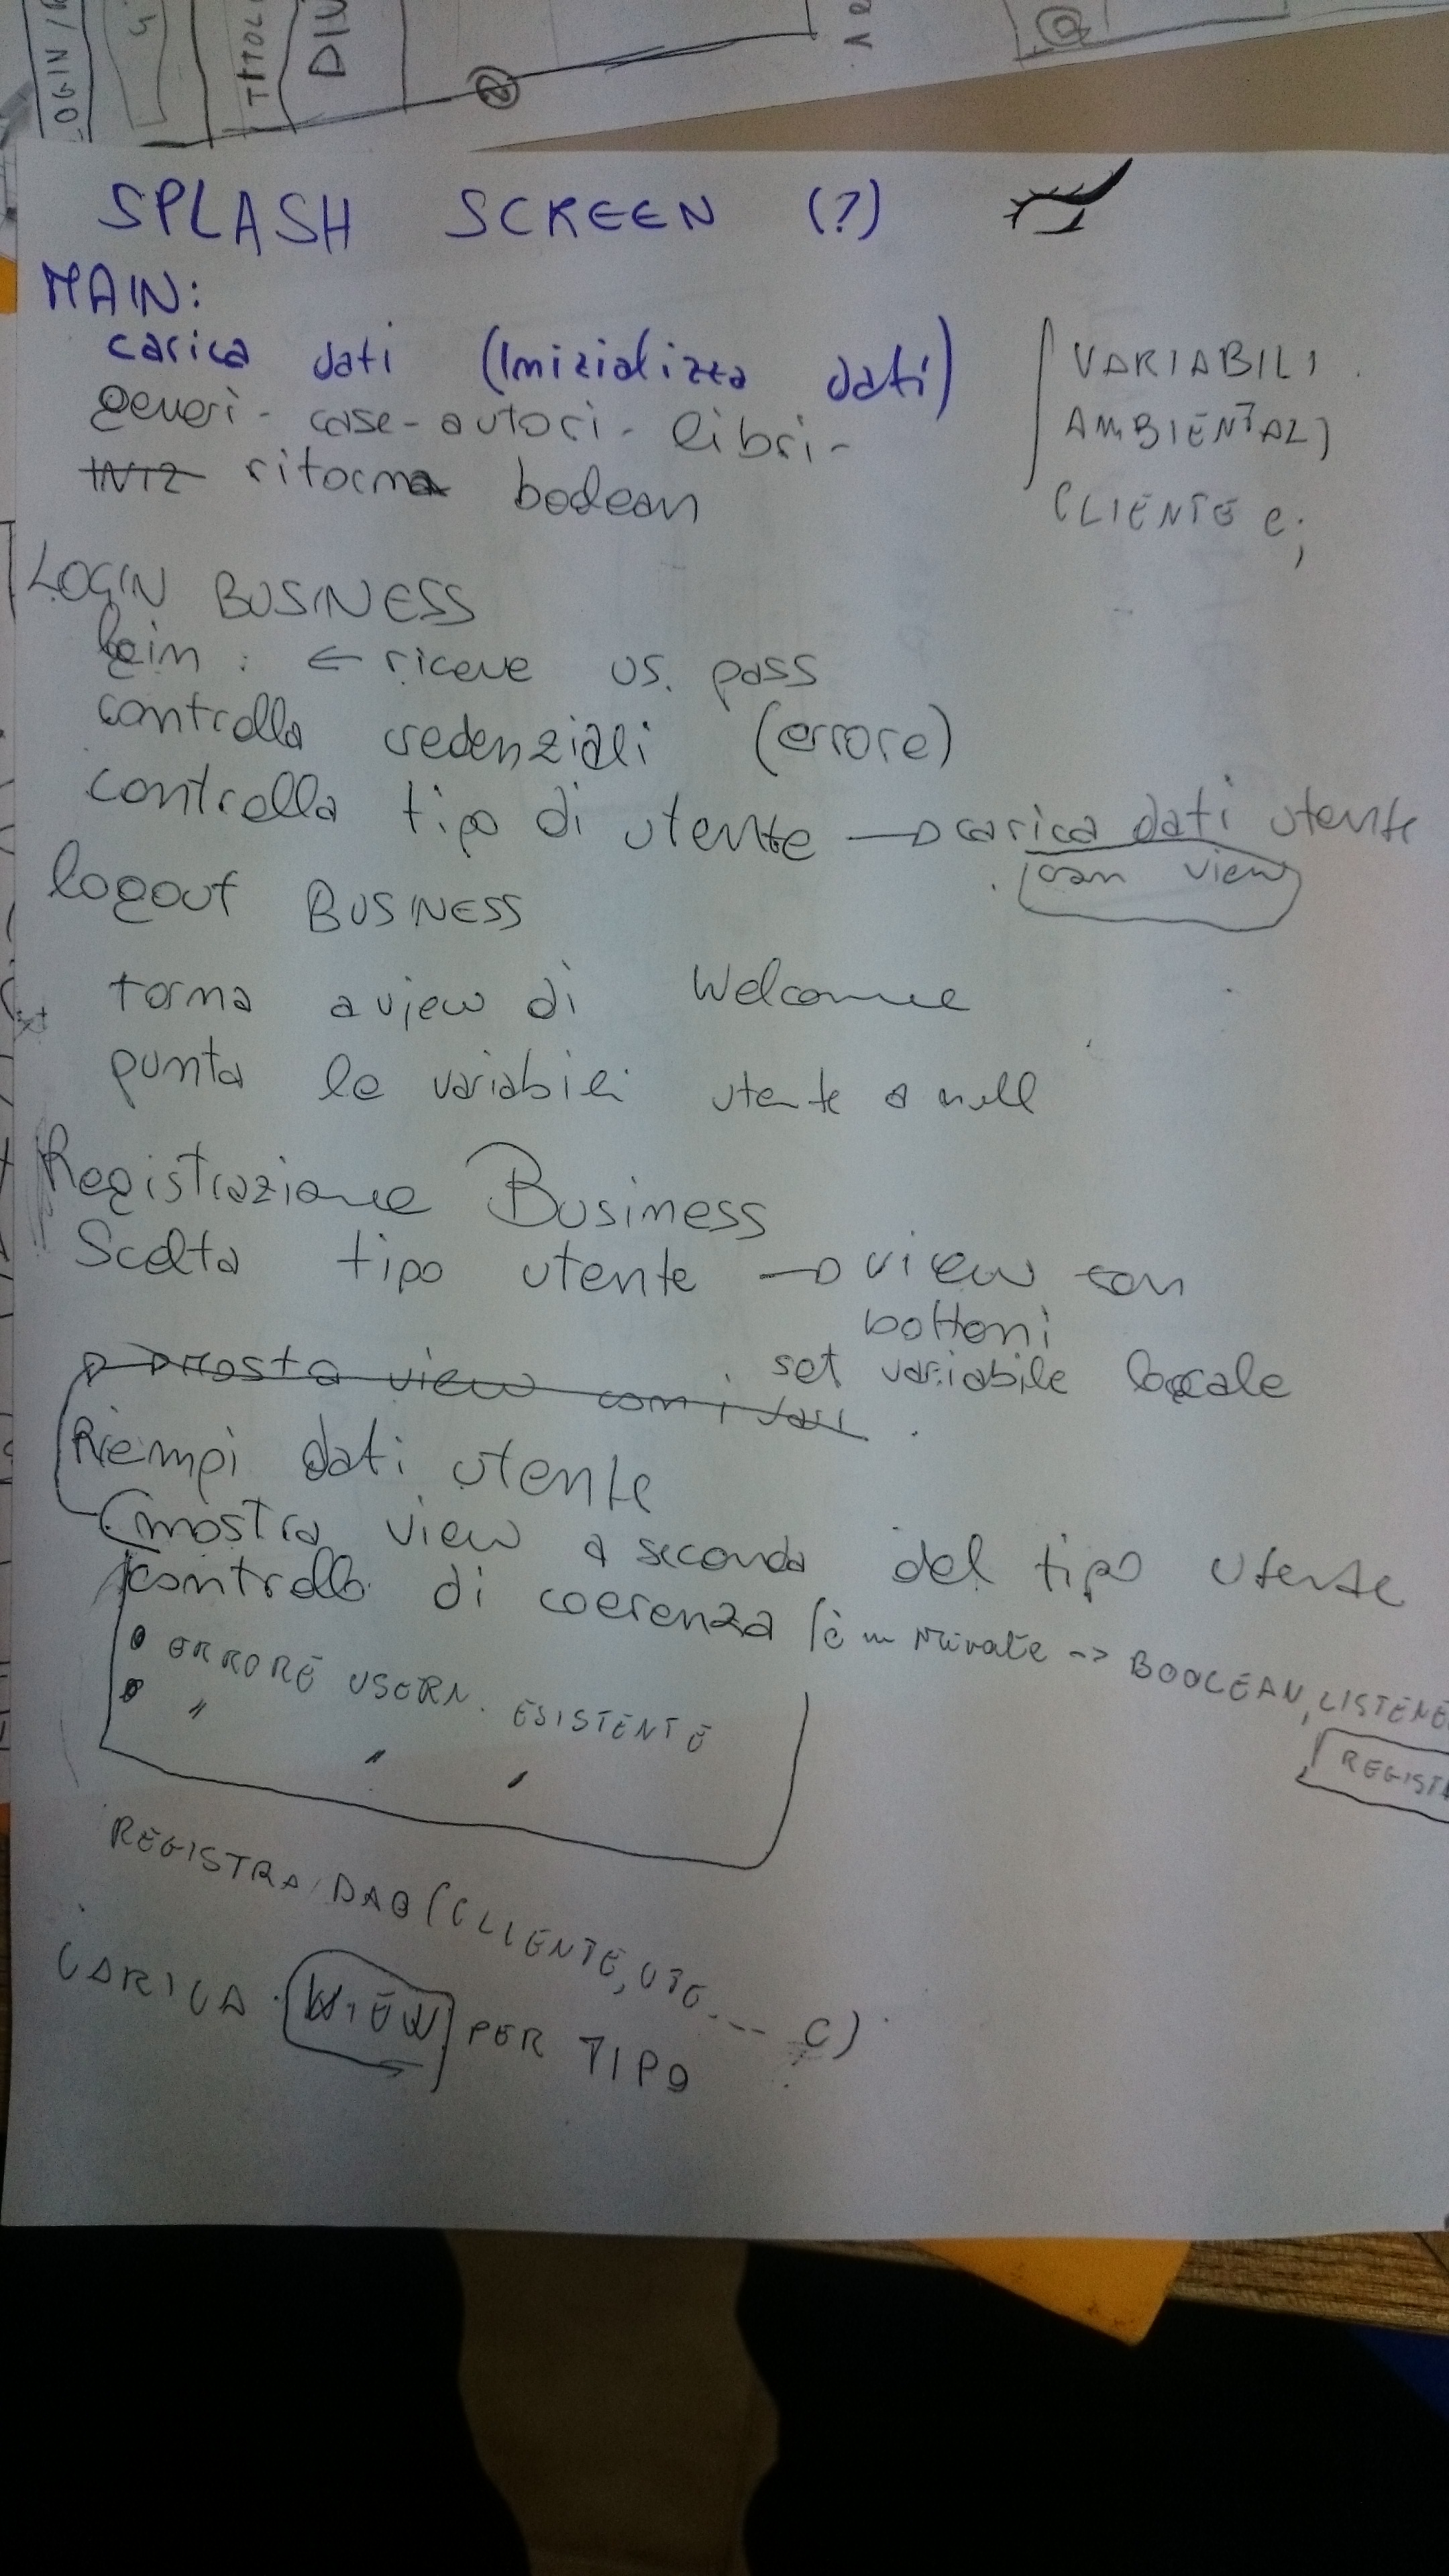 LOGIN /
TITOL
DIV
SPLASH SCREEN (?)
MAIN:
carica dati (Inizializza dati)
generi - case - autori - libri -
INIZ ritorna boolean
VARIABILI
AMBIENTALI
CLIENTE c;
LOGIN BUSINESS
login : ← riceve us. pass
controlla credenziali (errore)
controlla tipo di utente → carica dati utente
con view
logout BUSINESS
torna a view di Welcome
punta le variabili utente a null
Registrazione Business
Scelta tipo utente → view con
bottoni
set variabile locale
mosta view con i dati
Riempi dati utente
(mostra view a seconda del tipo utente
controllo di coerenza (è un private -> BOOLEAN, LISTENE
• ERRORE USERN. ESISTENTE
• " " "
REGISTA
REGISTRA DAO (CLIENTE, UTE ---- C)
CARICA VIEW PER TIPO